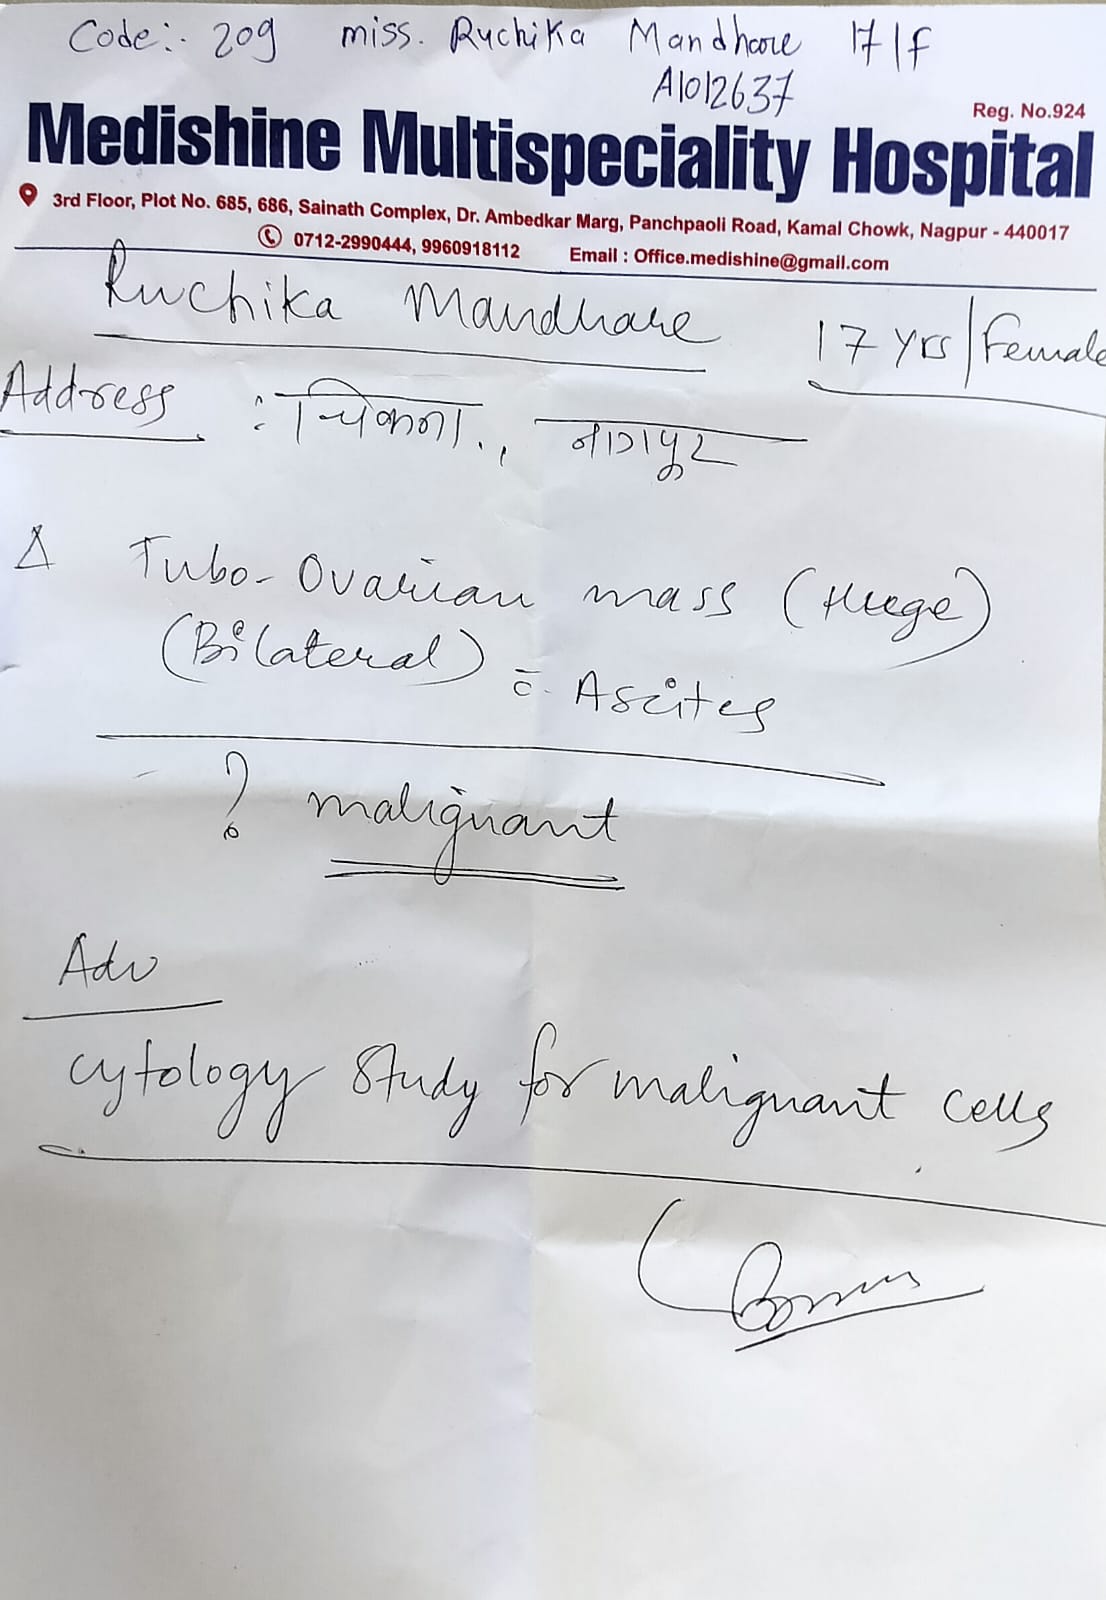 Code:- 209 miss. Ruchika Mandhare 17/F
A1012637
Reg. No.924
Medishine Multispeciality Hospital
3rd Floor, Plot No. 685, 686, Sainath Complex, Dr. Ambedkar Marg, Panchpaoli Road, Kamal Chowk, Nagpur - 440017
0712-2990444, 9960918112 Email : Office.medishine@gmail.com
Ruchika Mandhare 17 yrs/Female
Address : नागपुर
Δ Tubo-Ovarian mass (Huge)
(Bilateral) c̄ Ascites
? malignant
Adv
cytology study for malignant cells